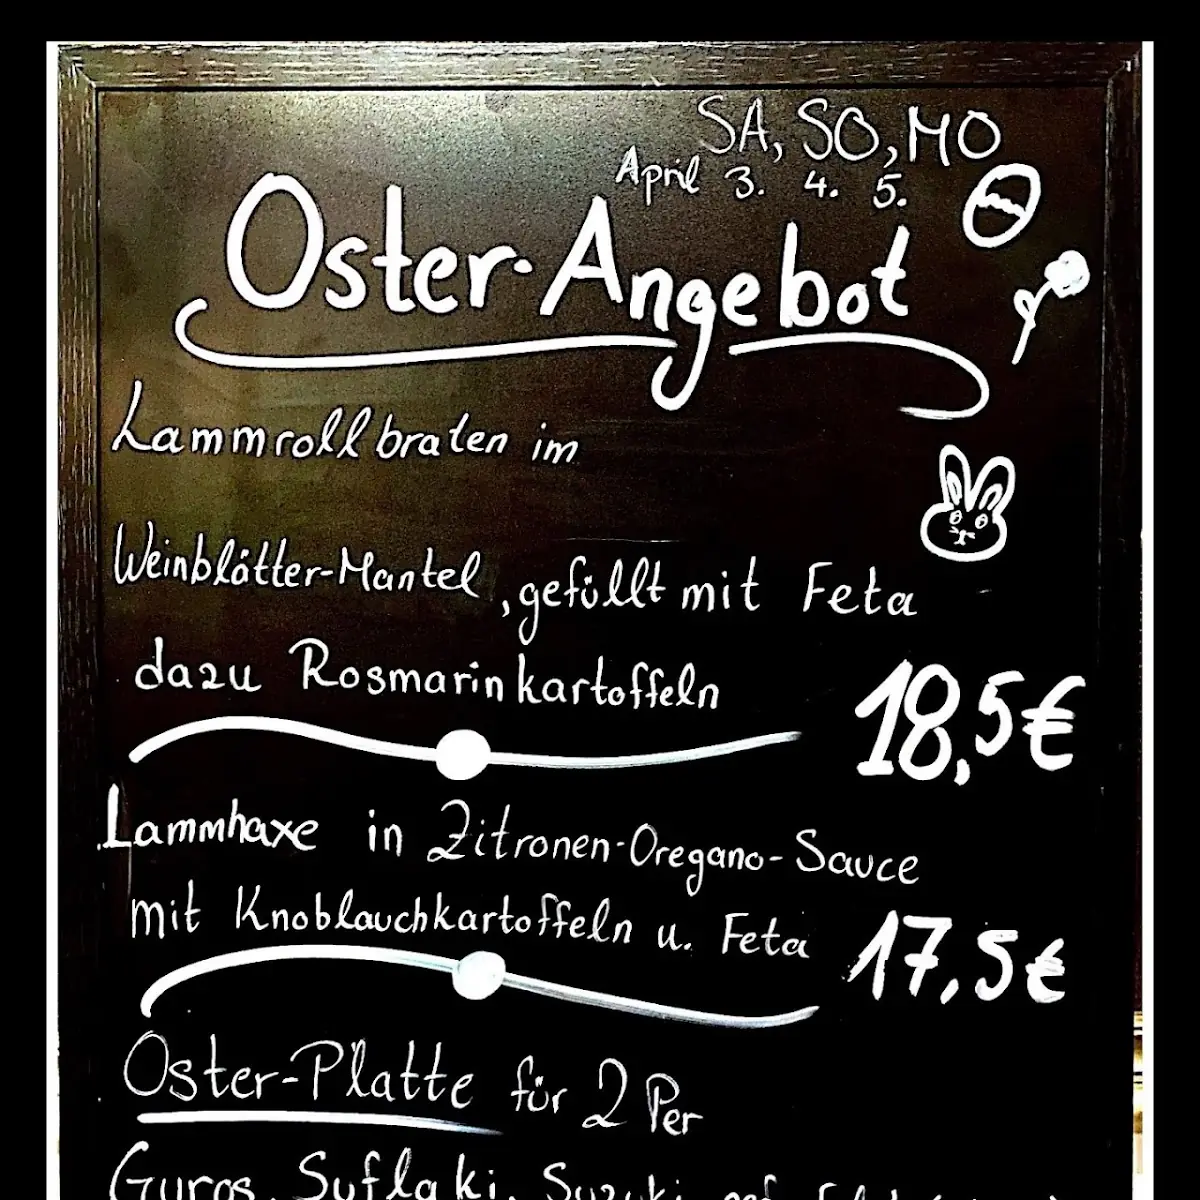 SA, SO, MO
April 3. 4. 5.
Oster-Angebot
Lammrollbraten im
Weinblätter-Mantel, gefüllt mit Feta
dazu Rosmarinkartoffeln
18,5€
Lammhaxe in Zitronen-Oregano-Sauce
mit Knoblauchkartoffeln u. Feta
17,5€
Oster-Platte für 2 Per
Gyros, Suflaki, Suzuki